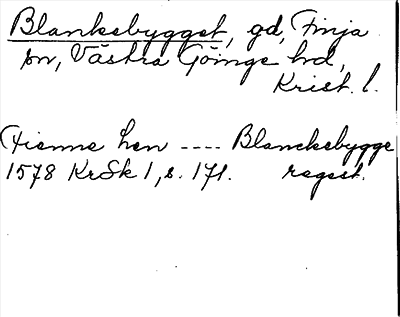 Blanksbygget, gd, Finja
sn, Västra Göinge hd,
Krist. l.
Hienne hen ---- Blancksbygge
1578 KrSk 1, s. 171. regest.